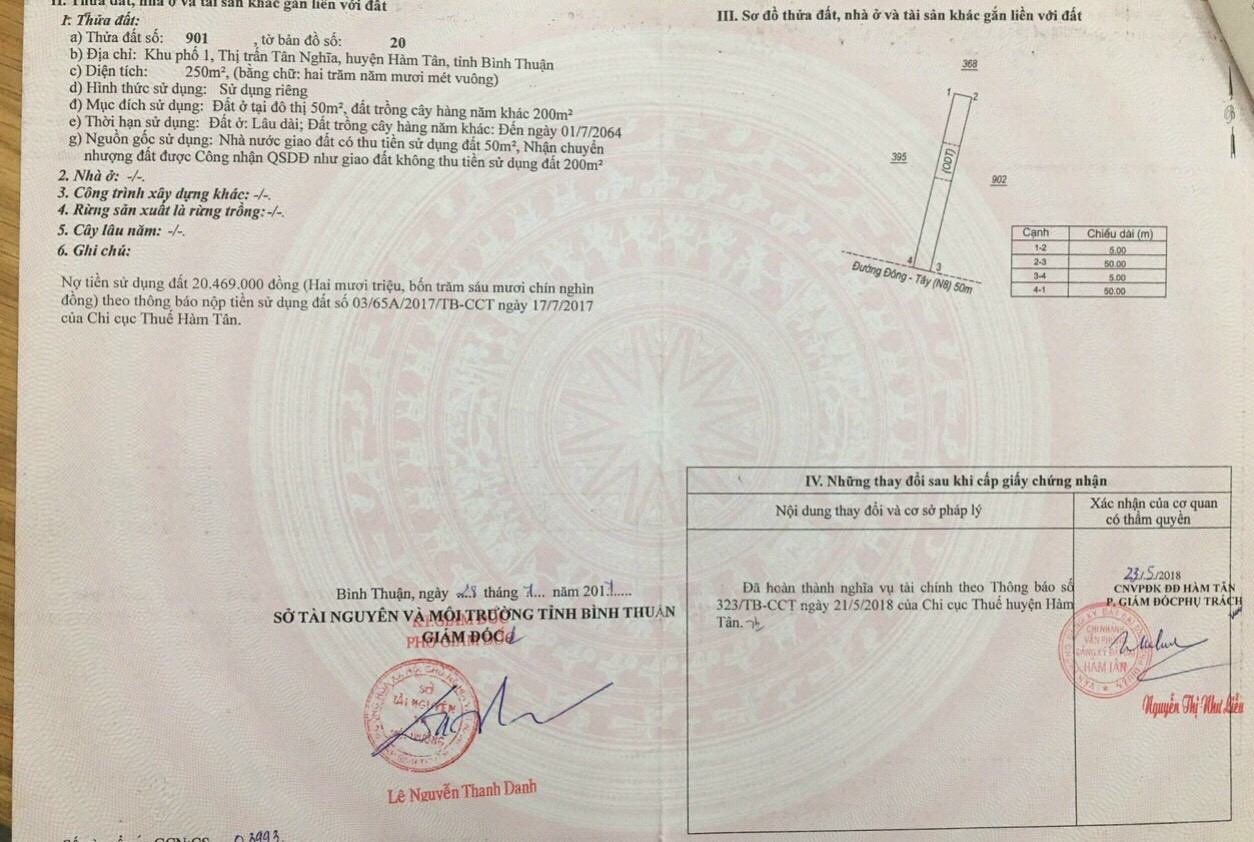 II. Thửa đất, nhà ở và tài sản khác gắn liền với đất
1. Thửa đất:
a) Thửa đất số: 901 , tờ bản đồ số: 20
b) Địa chỉ: Khu phố 1, Thị trấn Tân Nghĩa, huyện Hàm Tân, tỉnh Bình Thuận
c) Diện tích: 250m², (bằng chữ: hai trăm năm mươi mét vuông)
d) Hình thức sử dụng: Sử dụng riêng
đ) Mục đích sử dụng: Đất ở tại đô thị 50m², đất trồng cây hàng năm khác 200m²
e) Thời hạn sử dụng: Đất ở: Lâu dài; Đất trồng cây hàng năm khác: Đến ngày 01/7/2064
g) Nguồn gốc sử dụng: Nhà nước giao đất có thu tiền sử dụng đất 50m², Nhận chuyển
nhượng đất được Công nhận QSDĐ như giao đất không thu tiền sử dụng đất 200m²
2. Nhà ở: -/-.
3. Công trình xây dựng khác: -/-.
4. Rừng sản xuất là rừng trồng:-/-.
5. Cây lâu năm: -/-.
6. Ghi chú:
Nợ tiền sử dụng đất 20.469.000 đồng (Hai mươi triệu, bốn trăm sáu mươi chín nghìn
đồng) theo thông báo nộp tiền sử dụng đất số 03/65A/2017/TB-CCT ngày 17/7/2017
của Chi cục Thuế Hàm Tân.
Bình Thuận, ngày 28 tháng 7... năm 2017.....
SỞ TÀI NGUYÊN VÀ MÔI TRƯỜNG TỈNH BÌNH THUẬN
KT.GIÁM ĐỐC
GIÁM ĐỐC
PHÓ GIÁM ĐỐC
SỞ
TÀI NGUYÊN
Lê Nguyễn Thanh Danh
03993
III. Sơ đồ thửa đất, nhà ở và tài sản khác gắn liền với đất
368
1 2
395
(ODT)
902
4 3
Đường Đông - Tây (N8) 50m
Cạnh Chiều dài (m)
1-2 5.00
2-3 50.00
3-4 5.00
4-1 50.00
IV. Những thay đổi sau khi cấp giấy chứng nhận
Nội dung thay đổi và cơ sở pháp lý
Xác nhận của cơ quan
có thẩm quyền
Đã hoàn thành nghĩa vụ tài chính theo Thông báo số
323/TB-CCT ngày 21/5/2018 của Chi cục Thuế huyện Hàm
Tân.
23/5/2018
CNVPĐK ĐĐ HÀM TÂN
P. GIÁM ĐỐCPHỤ TRÁCH
CHI NHÁNH
VĂN PHÒNG
ĐĂNG KÝ ĐẤT ĐAI
HÀM TÂN
Nguyễn Thị Như Liễu